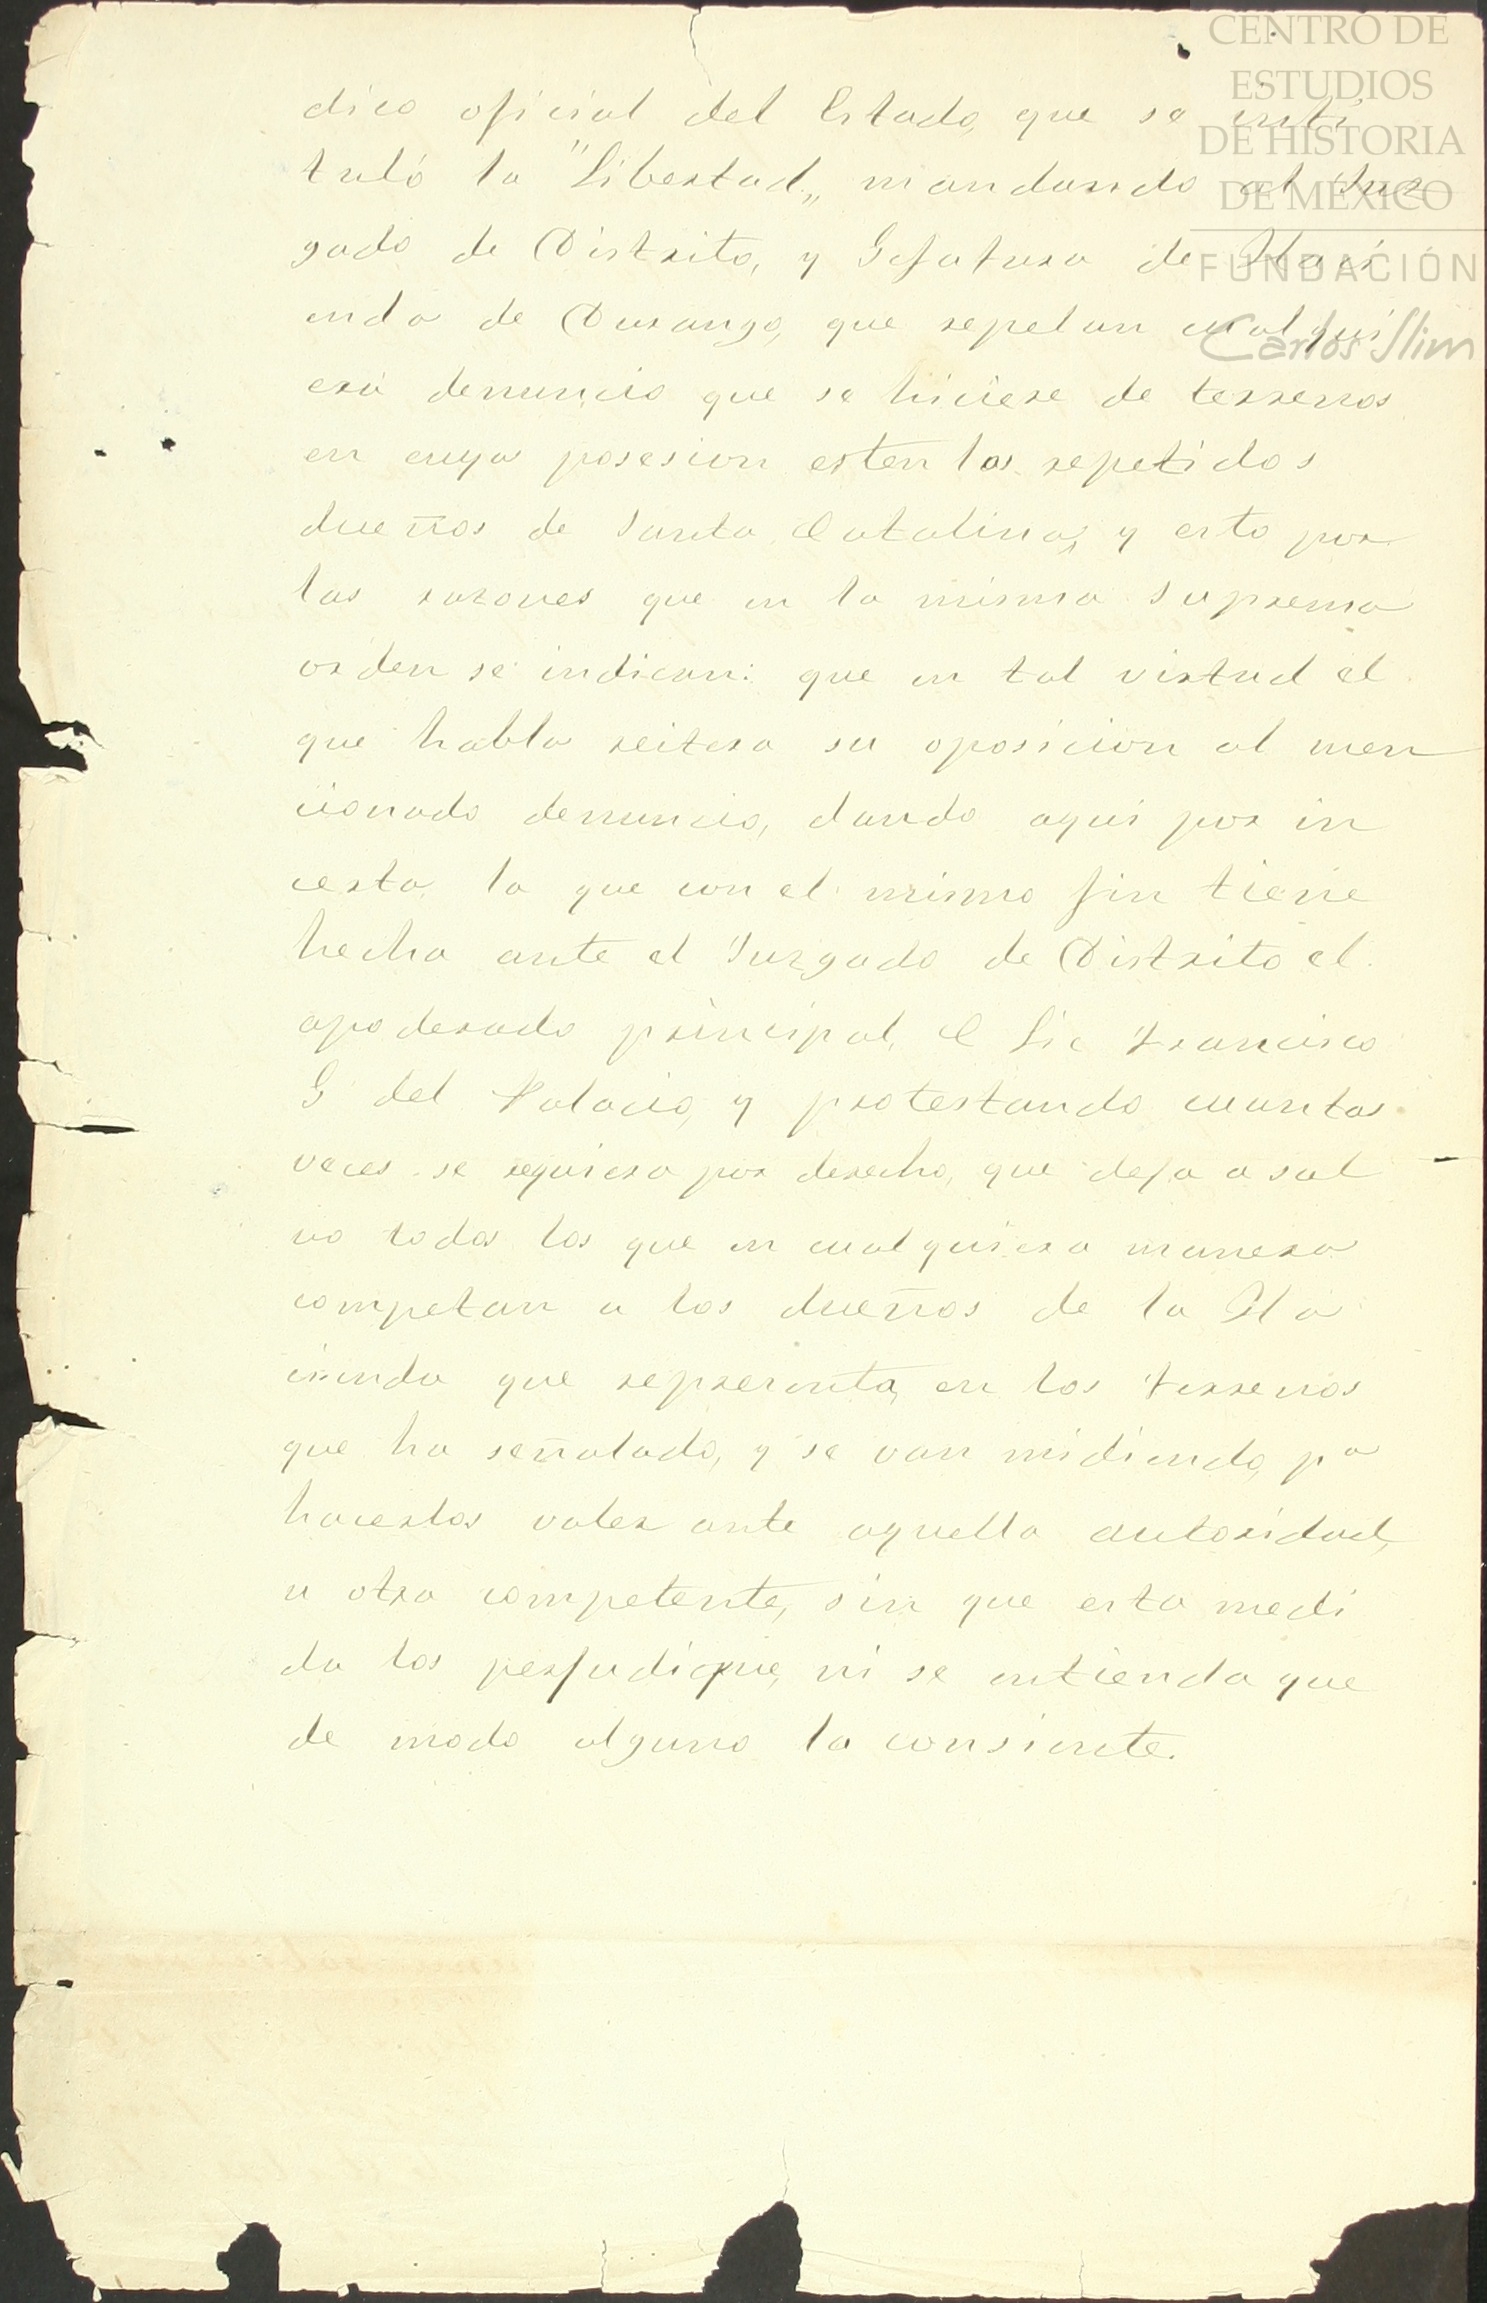 CENTRO DE
ESTUDIOS
DE HISTORIA
DE MÉXICO
FUNDACIÓN
Carlos Slim
dico oficial del Estado, que se inti
tuló la "Libertad„ mandando al Juz
gado de Distrito, y Gefatura de Haci
enda de Durango, que repelan cualqui
era denuncio que se hiciese de terrenos
en cuya posesion esten los repetidos
dueños de Santa Catalina, y esto por
las razones que en la misma Suprema
orden se indican: que en tal virtud el
que habla reitera su oposicion al men
cionado denuncio, dando aqui por in
certa la que con el mismo fin tiene
hecha ante el Juzgado de Distrito el
apoderado principal, el Lic Francisco
G del Palacio, y protestando cuantas
veces se requiera por derecho, que deja a sal
vo todos los que en cualquiera manera
competan a los dueños de la Ha
cienda que representa, en los terrenos
que ha señalado, y se van midiendo, pa
hacerlos valer ante aquella autoridad,
u otra competente, sin que esta medi
da los perjudique, ni se entienda que
de modo alguno la consiente.